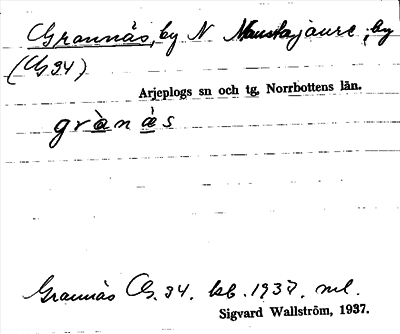 Grannäs, by N Maustajaure, by
(G 34)
Arjeplogs sn och tg, Norrbottens län.
grànä̀s
Grannäs G. 34. kb. 1937. ml.
Sigvard Wallström, 1937.